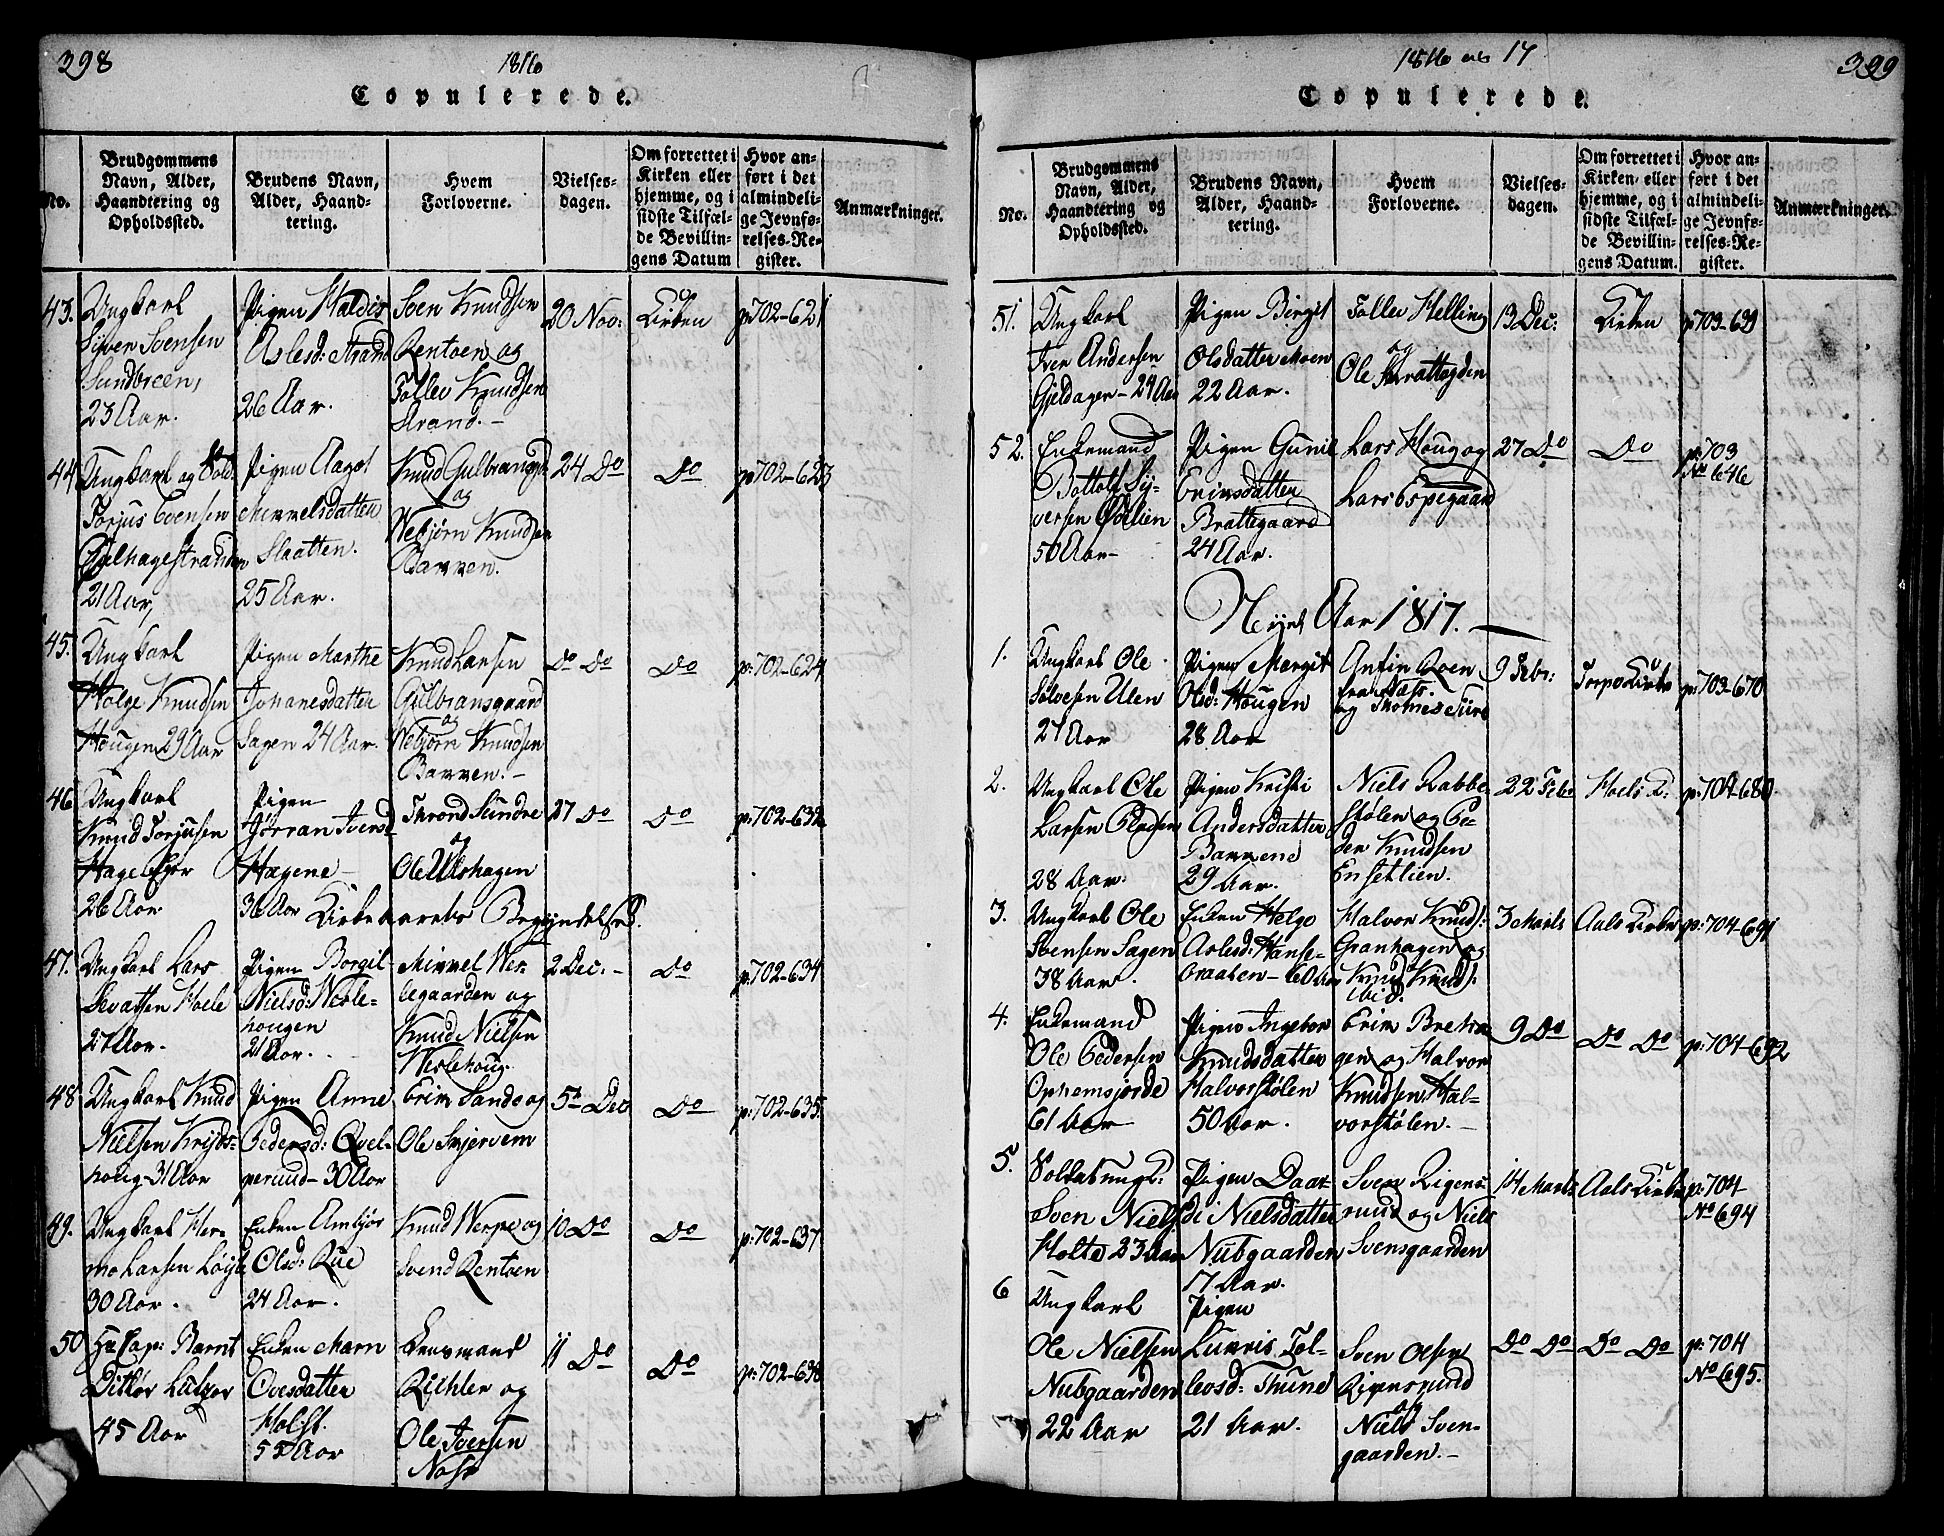 398
1816
Copulerede.
No.
Brudgommens Navn, Alder, Haandtering og Opholdssted.
Brudens Navn, Alder, Haandtering.
Hvem Forloverne.
Vielsesdagen.
Om forrettet i Kirken eller hjemme, og i sidste Tilfælde Bevillingens Datum
Hvor anført i det almindelige Jevnførelses-Register.
Anmærkninger.
43. Ungkarl
Siver Svensen
Sundbreen,
23 Aar.
Pigen Haldis
Aslesd: Strand
26 Aar.
Sven Knudsen
Rentoen og
Tollev Knudsen
Strand.
20 Nov:
Kirken
p: 702-621
44 Ungkarl og Sold:
Torjus Evensen
21 Aar,
Pigen Aagot
Mimmelsdatter
Slaatten.
25 Aar.
Knud Gulbransgd
og
Webjørn Knudsen
Barmen.
24 Do
Do
p: 702-623
45. Ungkarl
Holge Knudsen
Hougen 29 Aar
Pigen Marthe
Johanesdatter
Sagen 24 Aar.
Knud Larsen
Gulbransgaard
og
Webjørn Knudsen
Barmen.
Do Do
Do
p: 702-624
46 Ungkarl
Knud Torjusen
Hagel Eger
26 Aar
Pigen
Jørran Iversd
Hagene
36 Aar
Trond Sundre
og
Ole Ulshagen
27 Do
Do
p: 702-632
Kirkeaarets Begyndelse.
47. Ungkarl Lars
Sevatsen Hoele
27 Aar.
Pigen Borgil
Nielsd: Wesle-
hougen
21 Aar.
Mimmel Wes-
legaarden og
Knud Nielsen
Weslehoug.
2 Dec.
Do
p: 702-634
48 Ungkarl Knud
Nielsen Kryds-
31 Aar
Pigen Anne
Pedersd: Qvel-
perud 30 Aar
Erik Sando og
Ole Skjervem
5te Dec
Do
p: 702-635
49. Ungkarl Her-
mo Larsen Løyte
30 Aar.
Enken Ambjør
Olsd: Rue
24 Aar.
Knud Werpe og
Svend Rentoen
10 Do
Do
p: 702-637
50 Hr Cap: Barnt
45 Aar
Enken Marn
Ovesdatter
Holst.
55 Aar
Lensmand
Richter og
Ole Iversen
Næss
11 Do
Do
p: 702-638
1816 og 17
399
Copulerede.
No.
Brudgommens Navn, Alder, Haandtering og Opholdssted.
Brudens Navn, Alder, Haandtering.
Hvem Forloverne.
Vielsesdagen.
Om forrettet i Kirken eller hjemme, og i sidste Tilfælde Bevillingens Datum.
Hvor anført i det almindelige Jevnførelses-Register.
Anmærkninger.
51. Ungkarl
Iver Andersen
Gjeldager 24 Aar
Pigen Birgit
Olsdatter Moen
22 Aar.
Tollev Helling
og
Ole Skrattegden
13 Dec:
Kirken
p 703-639
52. Enkemand
Bottolf Sy-
versen
50 Aar
Pigen Gunil
Eriksdatter
Brattegaard
24 Aar.
Lars Houg og
Lars Espegaard
27 Do
Do
p: 703
No 646
Nyt Aar 1817.
1. Ungkarl Ole
Sølvesen Ulen
27 Aar
Pigen Margit
Olsd: Hougen
28 Aar
Anfin Roen
og Thomes Ture
9 Febr:
Torpo Kirke
p: 703-670
2. Ungkarl Ole
Larsen
28 Aar.
Pigen Kristi
Andersdatter
Barmene
29 Aar.
Niels Rabbe-
støłen og Pe-
der Knudsen
Ensetlien.
22 Febr
Hoels K.
p: 704-680
3. Ungkarl Ole
Svensen Sagen
38 Aar.
Enken Helge
Aslesd: Hanse-
braaten 60 Aar
Halvor Knuds:
Granhagen og
Knud Knuds:
ibid.
3 Marts
Aals Kirke
p: 704-691
4. Enkemand
Ole Pedersen
Ophemsjorde
61 Aar
Pigen Ingebor
Knudsdatter
Halvorstølen
50 Aar.
Erik Breha-
gen og Halvor
Knudsen Hal-
vorstølen.
9 Do
Do Do
p: 704-692
5. Soldat Ungk:
Sven Niels:
Holte 23 Aar
Pigen Daar-
di Nielsdatter
Nubgaarden
17 Aar.
Sven Rigens-
ruud og Niels
Svensgaarden
14 Marts
Aals Kirke
p: 704-
No 694
6 Ungkarl
Ole Nielsen
Nubgaarden
22 Aar
Pigen
Kunris Tol-
levsd: Thune
21 Aar.
Sven Olsen
Rigensruud
og
Niels Sven-
gaarden.
Do Do
Do Do
p: 704
No 695.